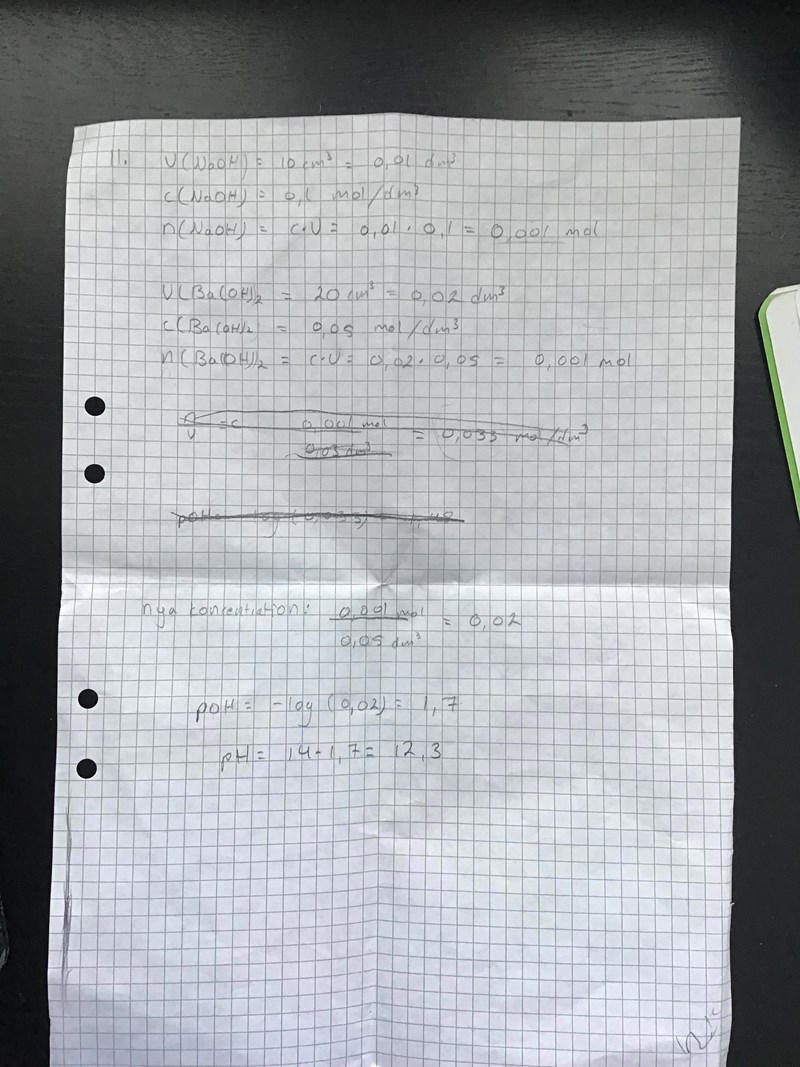 11. V(NaOH) = 10 cm³ = 0,01 dm³
c(NaOH) = 0,1 mol/dm³
n(NaOH) = c·V = 0,01 · 0,1 = 0,001 mol
V(Ba(OH)₂ = 20 cm³ = 0,02 dm³
c(Ba(OH)₂ = 0,05 mol/dm³
n(Ba(OH)₂ = c·V = 0,02 · 0,05 = 0,001 mol
n/V = c 0,001 mol / 0,03 dm³ = 0,033 mol/dm³
pOH = -log (0,033) = 1,48
nya koncentration: 0,001 mol / 0,05 dm³ = 0,02
pOH = -log (0,02) = 1,7
pH = 14 - 1,7 = 12,3